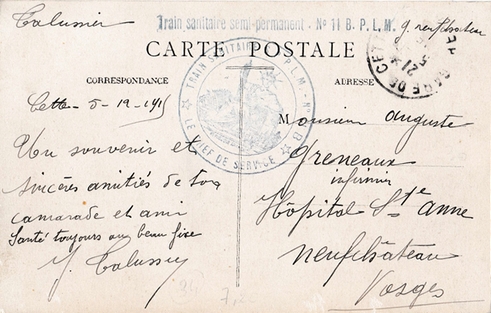 Train sanitaire semi-permanent - Nº 11 B. P. L. M.
CARTE POSTALE
CORRESPONDANCE
ADRESSE
TRAIN SANITAIRE P.L.M.
LE CHEF DE SERVICE
GARE DE CETTE
Cette - 5-12-1915
Un souvenir et
sincères amitiés de ton
camarade et ami
Santé toujours au beau fixe
Monsieur Auguste
Greneaux
infirmier
Hôpital Ste Anne
Neufchâteau
Vosges